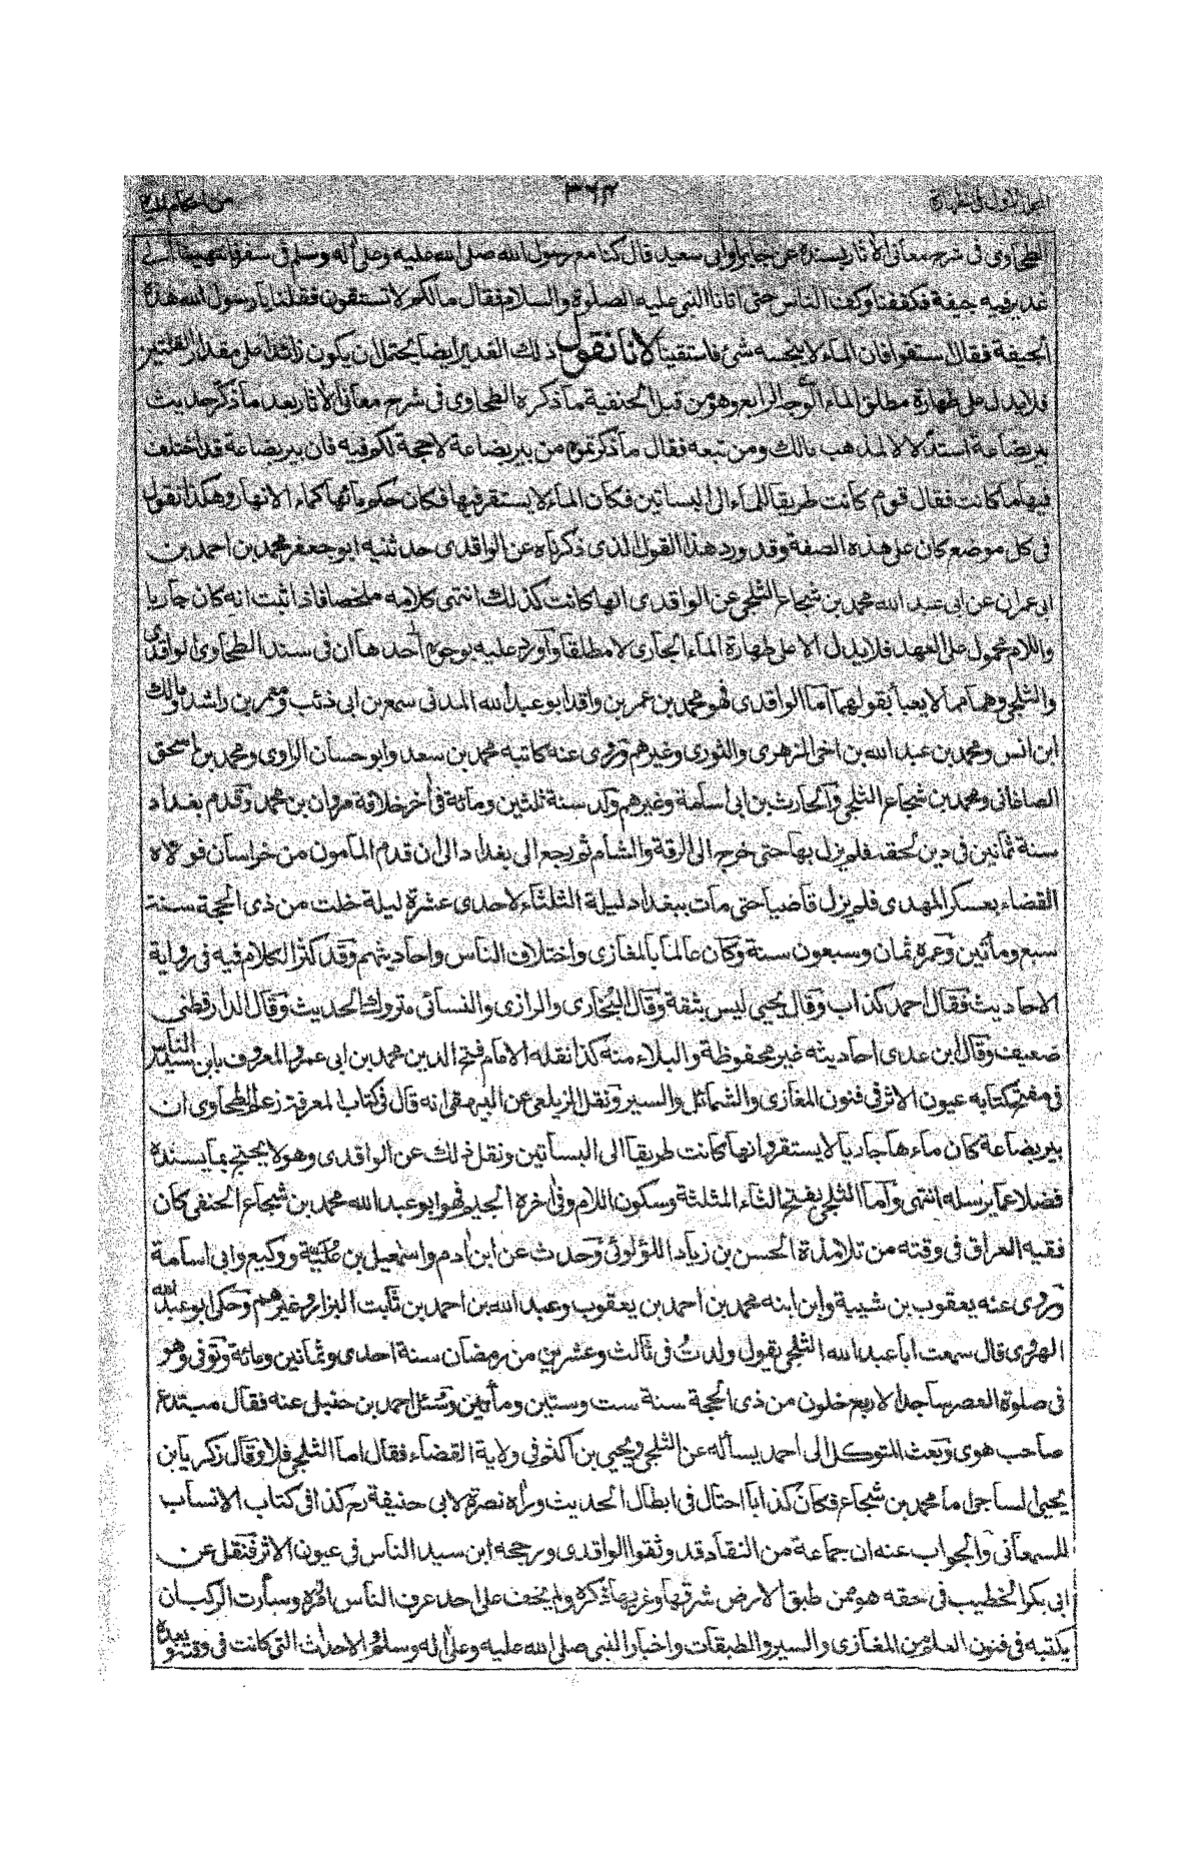 الجزء الاول في الطهارة ٣٦٢ من احكام المياه
الطحاوى فى شرح معانى الاثار بسنده عن جابر او ابى سعيد قال كنا مع رسول الله صلى الله عليه وعلى آله وسلم فى سفر فانتهينا الى
غدير فيه جيفة فكففنا وكف الناس حتى اتانا النبى عليه الصلوة والسلام فقال مالكم لا تستقون فقلنا يا رسول الله هذه
الجيفة فقال استقوا فان الماء لا ينجسه شئ فاستقينا لانا نقول ذلك الغدير ايضا يحتمل ان يكون زائدا على مقدار القلتين
فلا يدل على طهارة مطلق الماء الوجه الرابع وهو من قبل الحنفية ما ذكره الطحاوى فى شرح معانى الاثار بعد ما ذكر حديث
بير بضاعة استدلالا لمذهب مالك ومن تبعه فقال ما ذكرتموه من بير بضاعة لا حجة لكم فيه فان بير بضاعة قد اختلف
فيها ما كانت فقال قوم كانت طريقا للماء الى البساتين فكان الماء لا يستقر فيها فكان حكم مائها كماء الانهار وهكذا نقول
فى كل موضع كان على هذه الصفة وقد ورد هذا القول الذى ذكرناه عن الواقدى حدثنيه ابو جعفر محمد بن احمد بن
ابى عمران عن ابى عبد الله محمد بن شجاع الثلجى عن الواقدى انها كانت كذلك انتهى كلامه ملخصا فاذا ثبت انه كان جاريا
واللام محمول على العهد فلا يدل الا على طهارة الماء الجارى لا مطلقا واورد عليه بوجوه احدها ان فى سند الطحاوى الواقدى
والثلجى وهما مما لا يعبأ بقولهما اما الواقدى فهو محمد بن عمر بن واقد ابو عبد الله المدنى سمع من ابى ذئب ومعمر بن راشد ومالك
ابن انس ومحمد بن عبد الله بن اخى الزهرى والثورى وغيرهم وروى عنه كاتبه محمد بن سعد وابو حسان الراوى ومحمد بن اسحق
الصاغانى ومحمد بن شجاع الثلجى والحارث بن ابى اسامة وغيرهم ولد سنة ثلثين ومائة فى اخر خلافة مروان بن محمد وقدم بغداد
سنة ثمانين فى دين لحقه فلم يزل بها حتى خرج الى الرقة والشام ثم رجع الى بغداد الى ان قدم المامون من خراسان فولاه
القضاء بعسكر المهدى فلم يزل قاضيا حتى مات ببغداد ليلة الثلثاء لاحدى عشرة ليلة خلت من ذى الحجة سنة
سبع ومأتين وعمره ثمان وسبعون سنة وكان عالما بالمغازى واختلاف الناس واحاديثهم وقد كثر الكلام فيه فى رواية
الاحاديث فقال احمد كذاب وقال يحيى ليس بثقة وقال البخارى والرازى والنسائى متروك الحديث وقال الدارقطنى
ضعيف وقال ابن عدى احاديثه غير محفوظة والبلاء منه كذا نقله الامام فتح الدين محمد بن ابى عمرو المعروف بابن سيد الناس
فى مفتح كتابه عيون الاثر فى فنون المغازى والشمائل والسير ونقل الزيلعى عن البيهقى انه قال فى كتاب المعرفة زعم الطحاوى ان
بير بضاعة كان ماءها جاريا لا يستقر وانها كانت طريقا الى البساتين ونقل ذلك عن الواقدى وهو لا يحتج بما يسنده
فضلا عما يرسله انتهى واما الثلجى بفتح الثاء المثلثة وسكون اللام وفى اخره الجيم فهو ابو عبد الله محمد بن شجاع الحنفى كان
فقيه العراق فى وقته من تلامذة الحسن بن زياد اللؤلوئى وحدث عن ابن ادم واسمعيل بن علية ووكيع وابى اسامة
وروى عنه يعقوب بن شيبة وابن ابنه محمد بن احمد بن يعقوب وعبد الله بن احمد بن ثابت البزار وغيرهم وحكى ابو عبد الله
الهروى قال سمعت ابا عبد الله الثلجى يقول ولدت فى ثالث وعشرين من رمضان سنة احدى وثمانين ومائة وتوفى وهو
فى صلوة العصر ساجدا لاربع خلون من ذى الحجة سنة ست وستين ومأتين وسئل احمد بن حنبل عنه فقال مبتدع
صاحب هوى وبعث المتوكل الى احمد يسأله عن الثلجى ويحيى بن اكثم فى ولاية القضاء فقال اما الثلجى فلا وقال زكريا بن
يحيى الساجى اما محمد بن شجاع فكان كذابا احتال فى ابطال الحديث ورده نصرة لابى حنيفة رح كذا فى كتاب الانساب
للسمعانى والجواب عنه ان جماعة من النقاد قد وثقوا الواقدى ورجحه ابن سيد الناس فى عيون الاثر فنقل عن
ابى بكر الخطيب فى حقه هو ممن طبق الارض شرقها وغربها ذكره ولم يخف على احد عرف الناس امره وسارت الركبان
بكتبه فى فنون العلم من المغازى والسير والطبقات واخبار النبى صلى الله عليه وعلى اله وسلم والاحداث التى كانت فى وقته وبعده